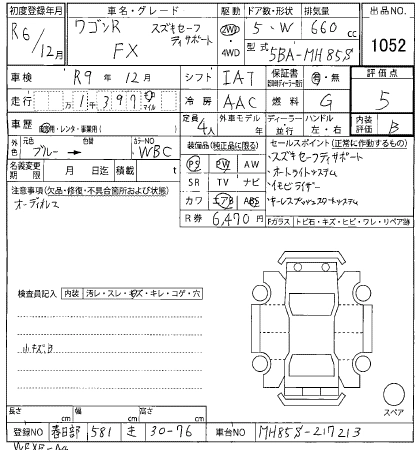 初度登録年月 車名・グレード 駆動 ドア数・形状 排気量 出品NO
R6/12月 ワゴンR スズキセーフティサポート FX 2WD・4WD 5・W 660cc 1052
型式 5BA-MH85S
車検 R9年12月 シフト IAT 保証書 有・無 評価点
走行 万1千397 マイル 冷房 AAC 燃料 G 5
車歴 自家用・レンタ・事業用( ) 定員 4人 外車モデル 年 ディーラー・並行 ハンドル 左・右 内装評価 B
外色 元色 ブルー → 色替 カラーNO WBC
装備品(純正品に限る) セールスポイント(正常に作動するもの)
名義変更期限 月 日迄 積載 t
PS PW AW
・スズキセーフティサポート
SR TV ナビ
・オートライトシステム
注意事項(欠品・修復・不具合箇所および状態)
カワ エアB ABS
・イモビライザー
オーディオレス
R券 6,470円
・キーレスプッシュスタートシステム
Fガラス トビ石・キズ・ヒビ・ワレ・リペア跡
検査員記入 内装 汚レ・スレ・キズ・キレ・コゲ・穴
小キズ凹
スペア
長さ cm 幅 cm 高さ cm
登録NO 春日部 581 き 30-76 車台NO MH85S-217213